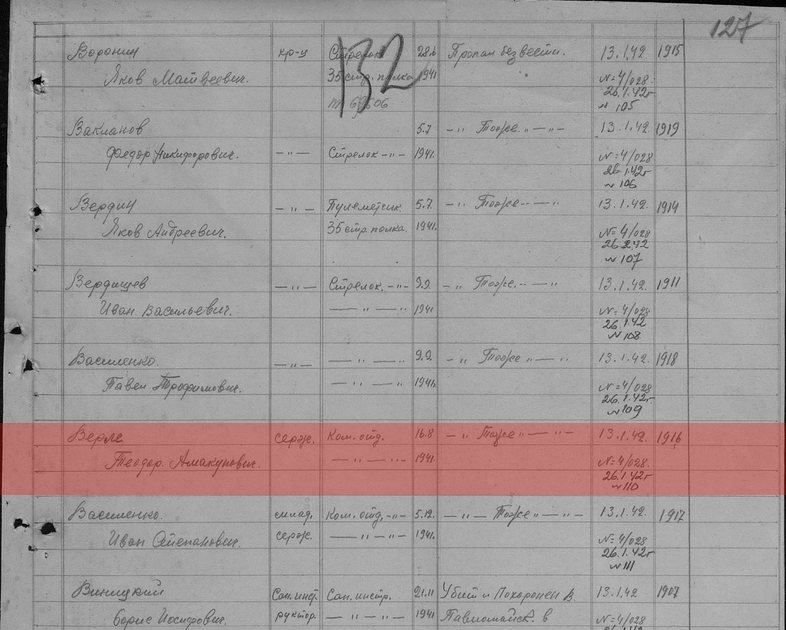 127
132
Воронин кр-ц Стрелок 28.6 Пропал без вести. 13.1.42 1915
Яков Матвеевич. 35 стр. полка 1941 №4/028
26.1.42г
№105
Вакланов 5.7 -"- Тоже. -"- 13.1.42 1919
Федор Никифорович. -"- Стрелок -"- 1941. №4/028
26.1.42г
№106
Вердин -"- Пулеметчик. 5.7. -"- Тоже -"- 13.1.42 1914
Яков Андреевич. 35 стр. полка. 1941. №4/028
№107
Вердищев -"- Стрелок. -"- 9.9. -"- Тоже. -"- 13.1.42 1911
Иван Васильевич. -"- 1941 №4/028
26.1.42
№108
Василенко. -"- -"- 9.9. -"- Тоже -"- 13.1.42 1918
Павел Трофимович. -"- 1941. №4/028
26.1.42г
№109
Верле серж. Ком. отд. 16.8 -"- Тоже -"- 13.1.42. 1916
Теодор Амакунович. -"- 1941 №4/028.
26.1.42г
№110
Василенко. млад. Ком. отд. -"- 5.12. -"- Тоже -"- 13.1.42 1917
Иван Степанович. серж. -"- 1941. №4/028
26.1.42г
№111
Виницкий Сан.инст Сан. инстр. 21.11 Убит и Похоронен в 13.1.42 1907
Борис Иосифович. руктор. 1941 Павломайск. в №4/028